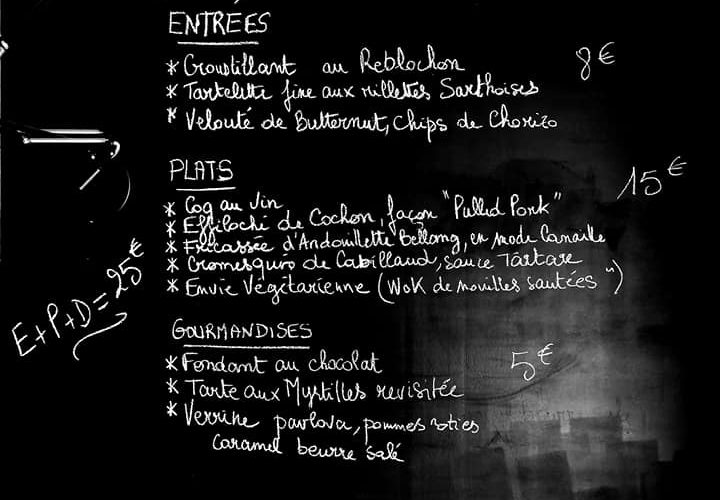 ENTRÉES
* Croustillant au Reblochon
8€
* Tartelette fine aux rillettes Sarthoises
* Velouté de Butternut, chips de Chorizo
PLATS
15€
* Coq au Vin
* Effiloché de Cochon, façon "Pulled Pork"
* Fricassée d'Andouillette Bellang, en mode Canaille
* Cromesquis de Cabillaud, sauce Tartare
* Envie Végétarienne (Wok de nouilles sautées ")
E+P+D=25€
GOURMANDISES
* Fondant au chocolat
5€
* Tarte aux Myrtilles revisitée
* Verrine pavlova, pommes roties
caramel beurre salé